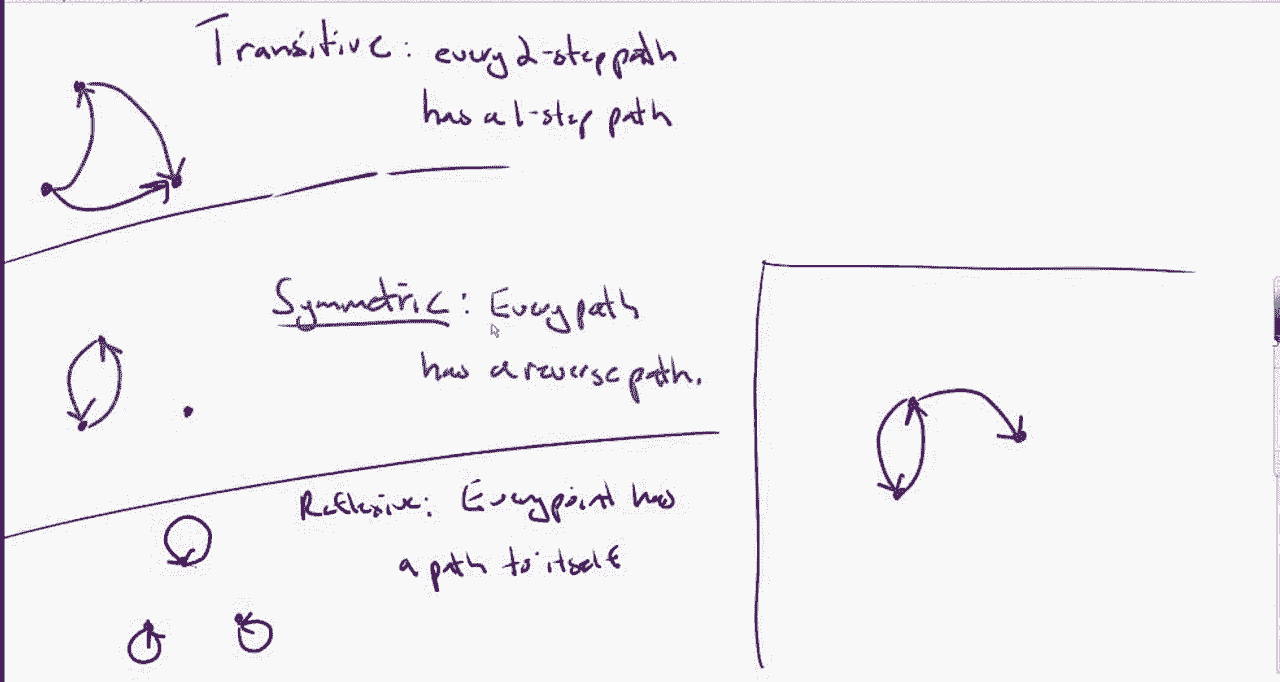 Transitive: every 2-step path
has a 1-step path
Symmetric: Every path
has a reverse path.
Reflexive: Every point has
a path to itself